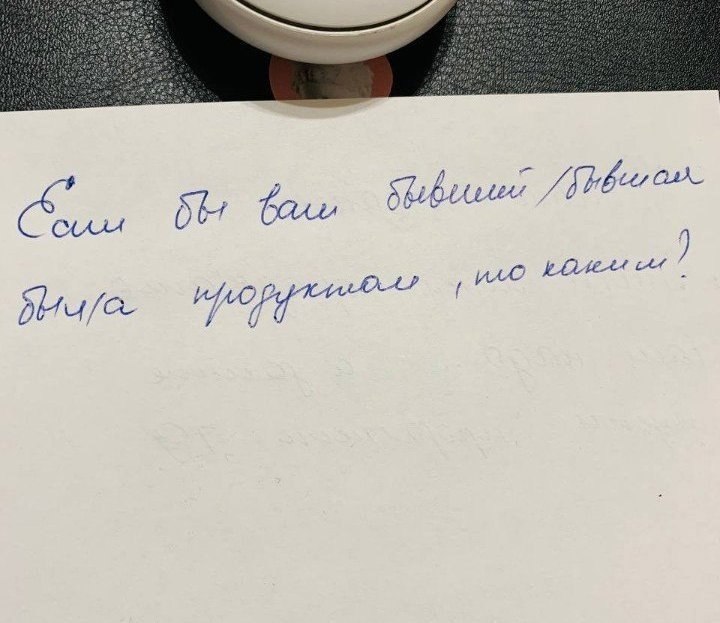 Если бы ваш бывший/бывшая
был/а продуктом, то каким?